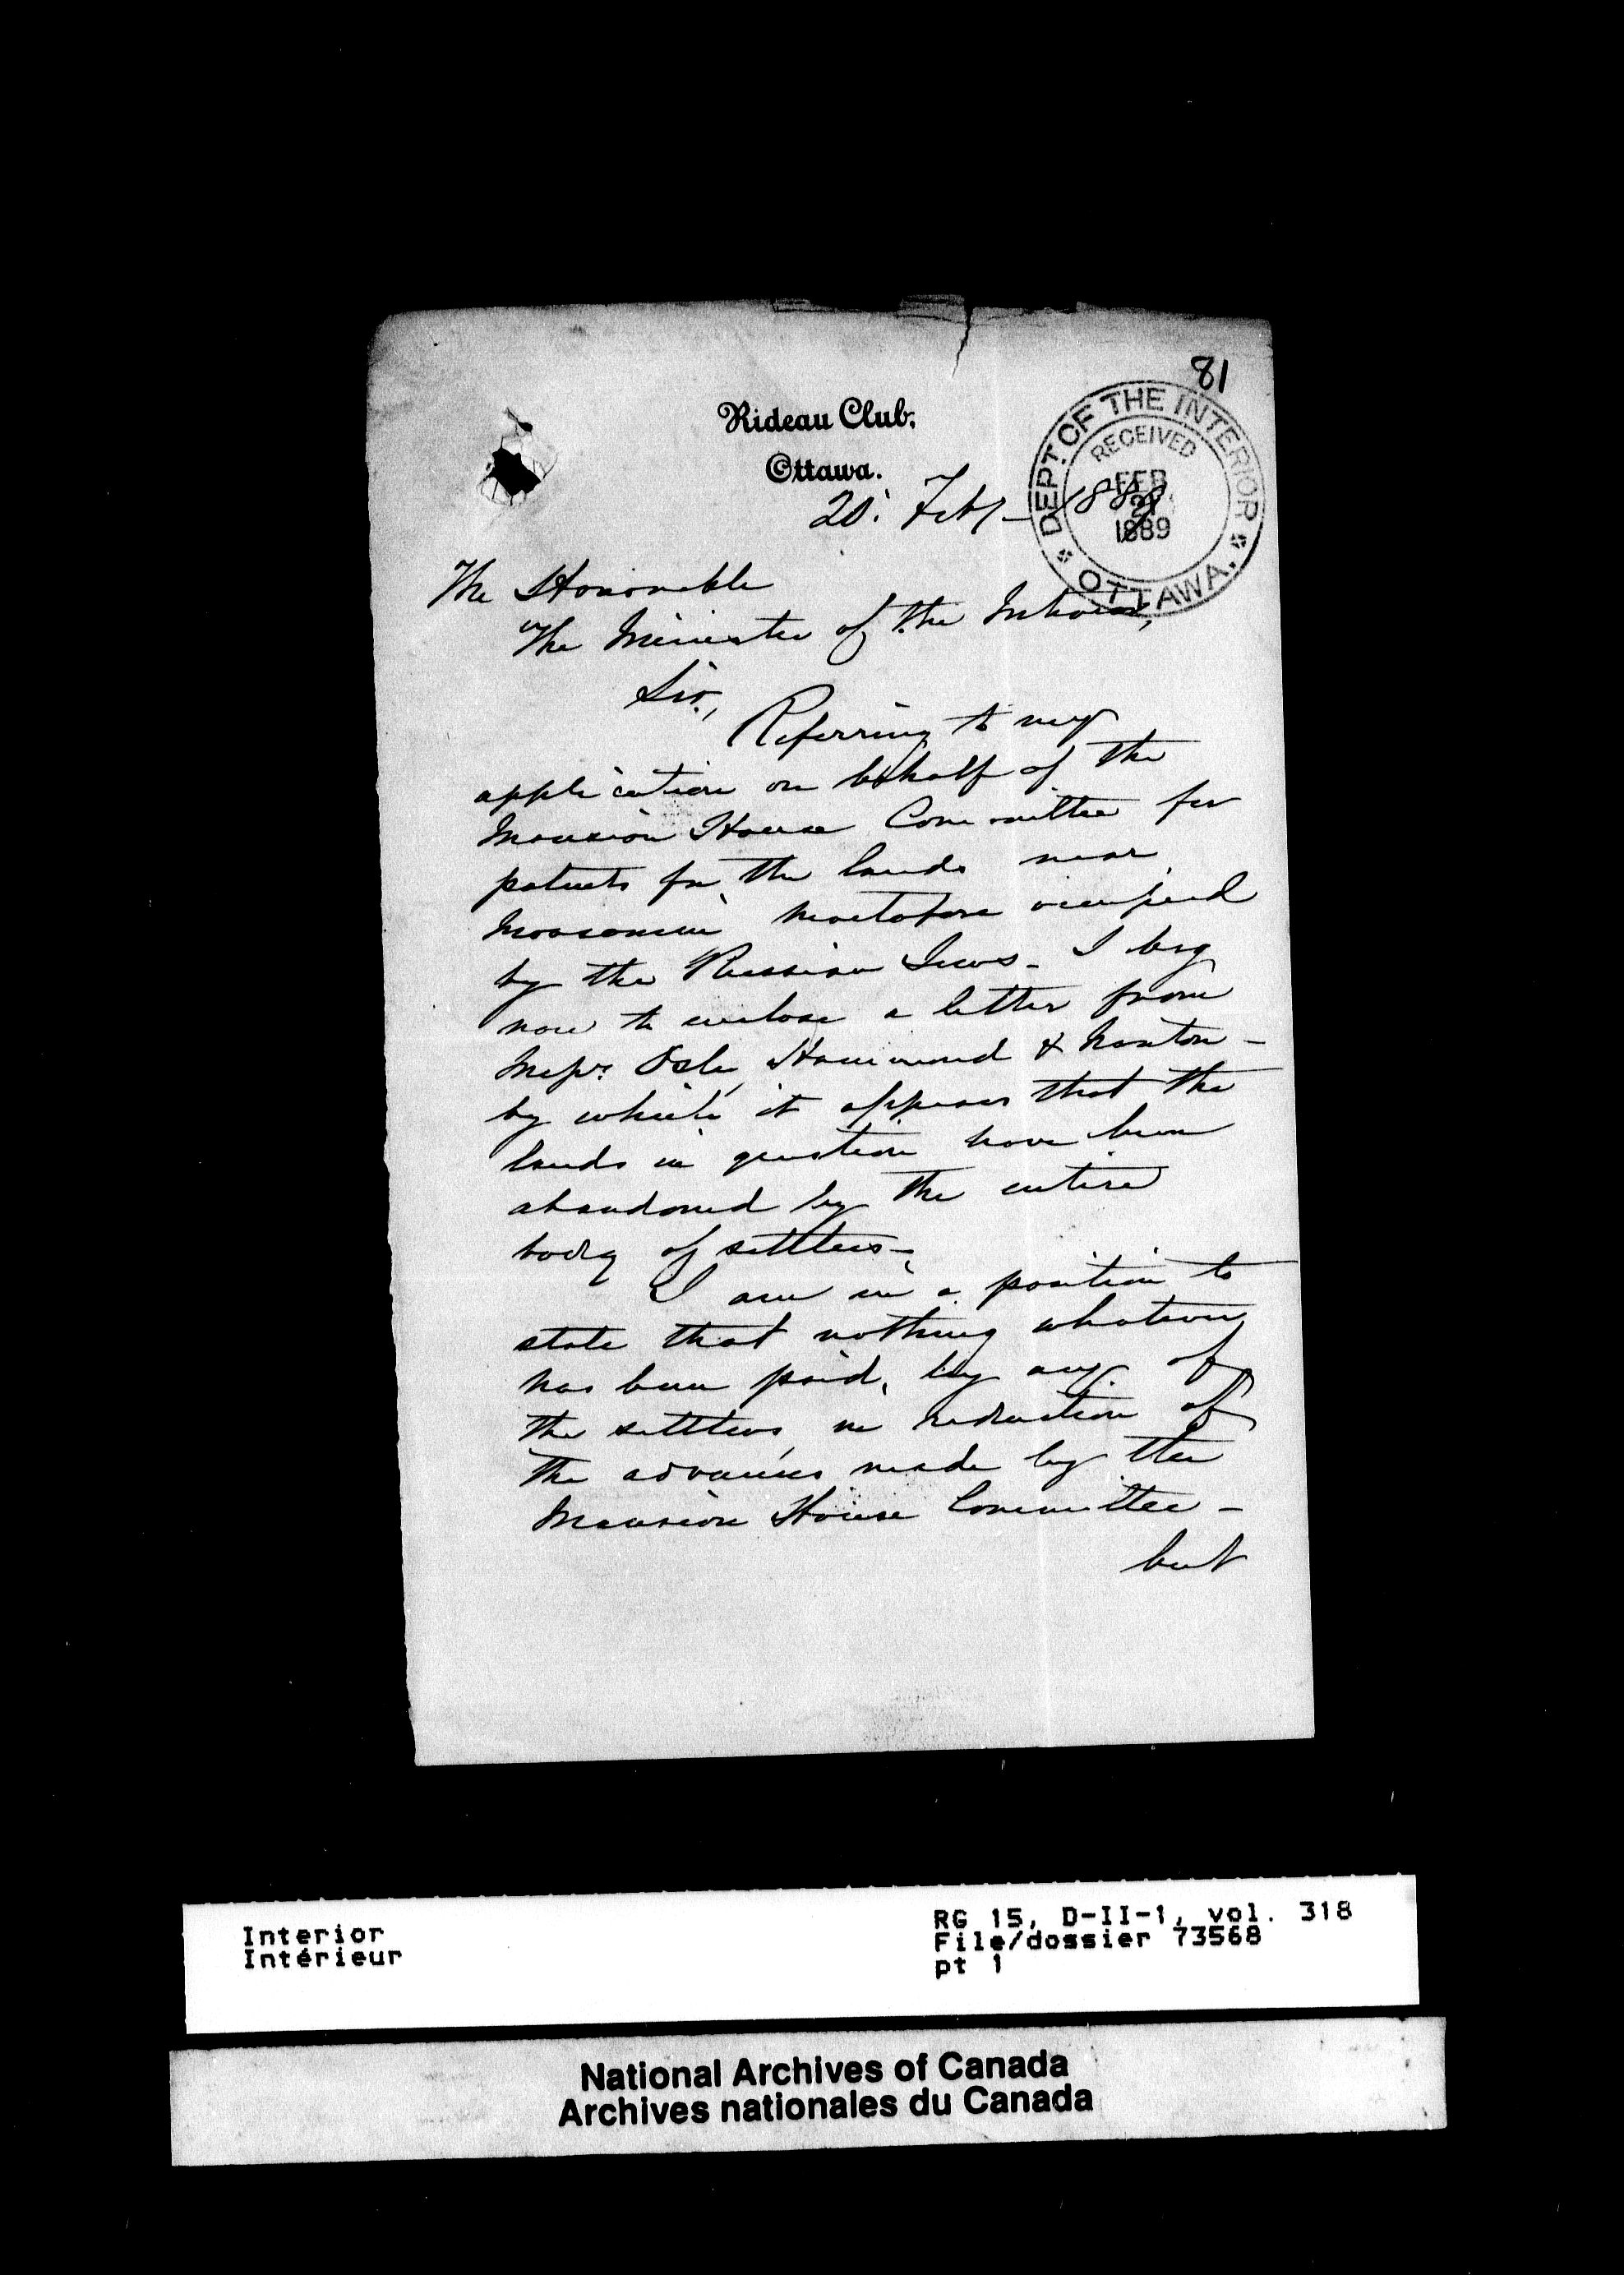 81
Rideau Club,
Ottawa.
DEPT. OF THE INTERIOR
RECEIVED
FEB
21
1889
OTTAWA.
20. Feby - 1889
The Honorable
The Minister of the Interior,
Sir,
Referring to my
application on behalf of the
Mansion House Committee for
patents for the lands near
Moosomin heretofore occupied
by the Russian Jews - I beg
now to enclose a letter from
Messrs Osler, Hammond & Nanton -
by which it appears that the
lands in question have been
abandoned by the entire
body of settlers -
I am in a position to
state that nothing whatever
has been paid, by any of
the settlers, in reduction of
the advances made by the
Mansion House Committee -
but
Interior
Intérieur
RG 15, D-II-1, vol. 318
File/dossier 73568
pt 1
National Archives of Canada
Archives nationales du Canada